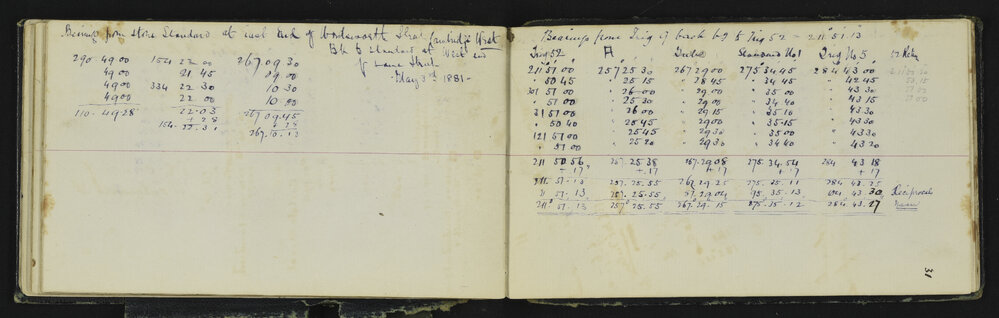 Bearings from Stone Standard at East End of Wordsworth Street Cambridge West
Blk to Standard at West end
of same Street
May 3rd 1881-
290 49 00 154 22 00 267 09 30
49 00 21 45 09 00
49 00 334 22 30 10 30
49 00 22 00 10 00
110. 49 28 22.03 267 09.45
+ 28 + 28
154. 22. 31 267. 10. 13
Bearings from Trig 9 back bg to Trig 52 - 211° 51' 13
Trig 52 A Standard No 1 Trig No 5
211 51 00 257 25 30 267 29 00 275 34 45 284 43 00
" 50 45 " 25 15 " 28 45 " 34 45 " 42 45
301 51 00 " 26 00 " 29 00 " 35 00 " 43 30
" 51 00 " 25 30 " 29 00 " 34 40 " 43 15
31 51 00 " 26 00 " 29 15 " 35 10 " 43 30
" 50 40 " 25 45 " 29 00 " 35.15 " 43 30
121 51 00 " 25 45 " 29 30 " 35 00 " 43 30
" 51 00 " 25 20 " 29 30 " 34 40 " 43 20
211 50 56 257. 25 38 267. 29 08 275. 34. 54 284 43 18
+ 17 + 17 + 17 + 17 + 17
211. 51. 13 257. 25. 55 267 29 25 275. 35. 11 284 43. 35
" 51. 13 257. 25. 55 87 29 04 95. 35. 13 104 43 20 Reciprocals
211° 51. 13 257° 25. 55 267° 29. 15 275° 35. 12 284. 43. 27 mean
31